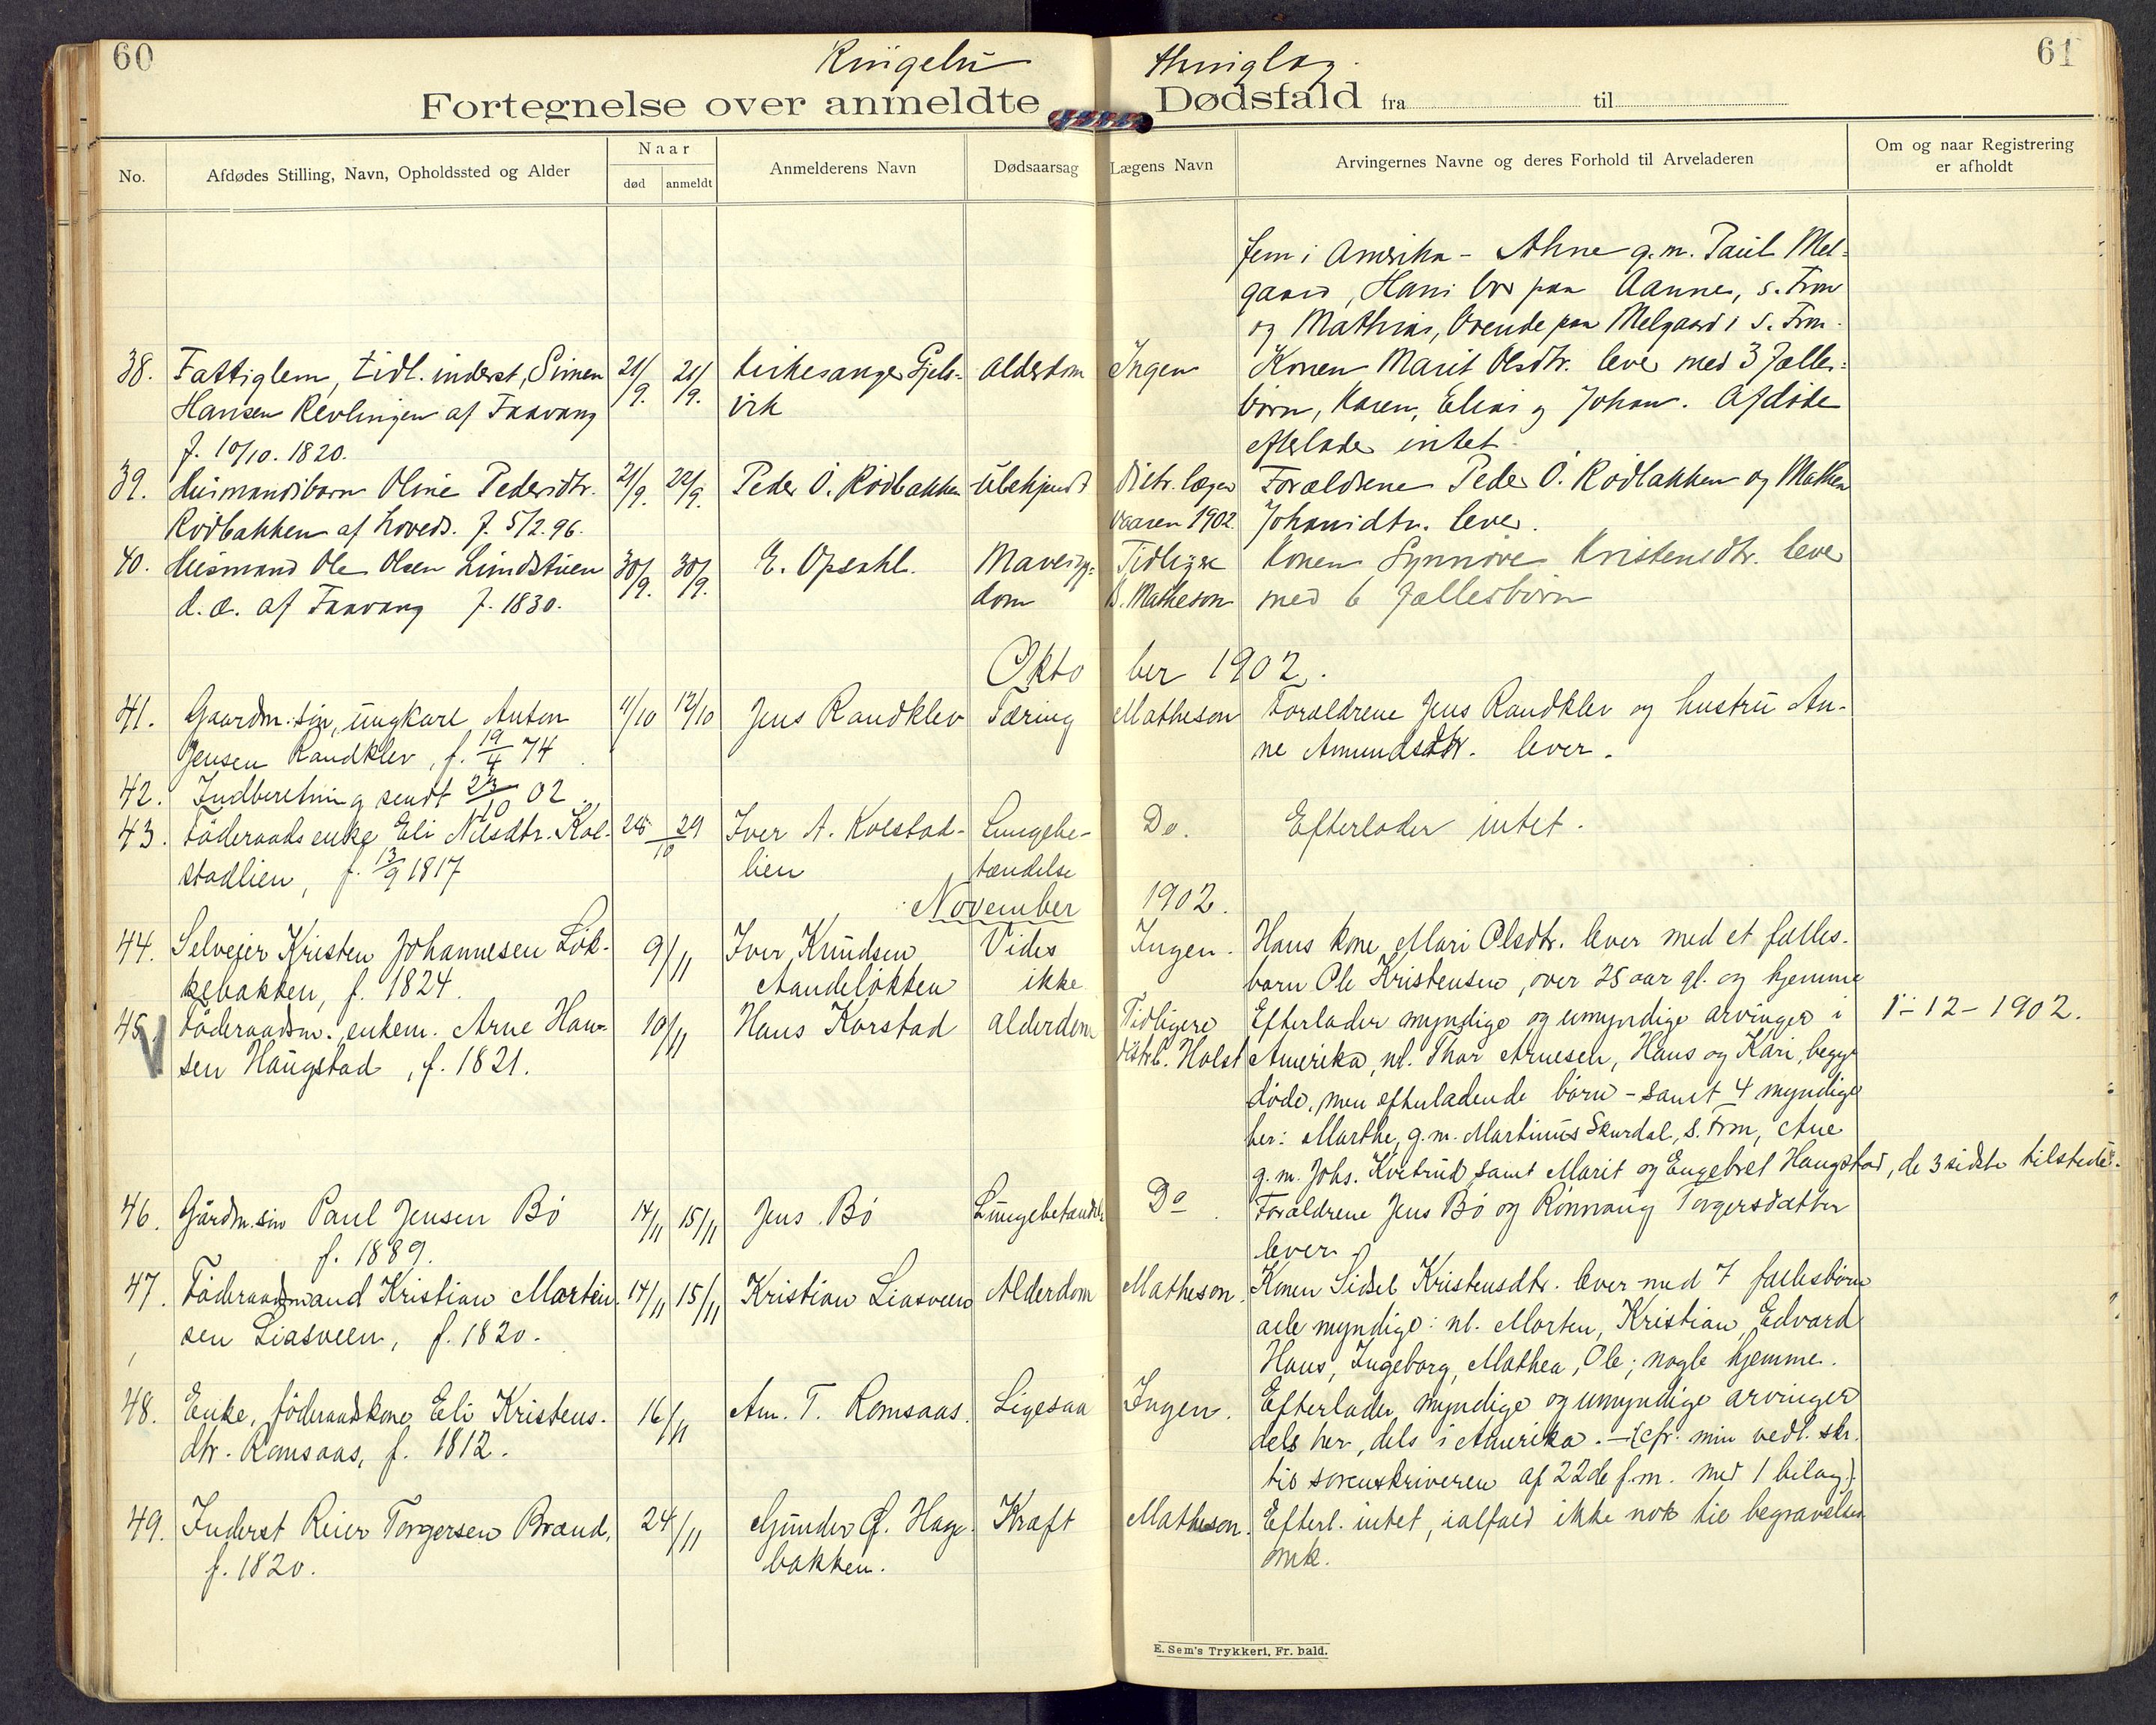 60
Ringebu
Thinglag.
61
Fortegnelse over anmeldte Dødsfald fra til
No.
Afdødes Stilling, Navn, Opholdssted og Alder
Naar
død
anmeldt
Anmelderens Navn
Dødsaarsag
Lægens Navn
Arvingernes Navne og deres Forhold til Arveladeren
Om og naar Registrering
er afholdt
fem i Amerika - Ahne g.m. Paul Mel-
gaard, Hans bor paa Aanne, s. Fron
og Mathias, boende paa Melgaard i S. Fron.
38. Fattiglem, tidl. inderst, Simen 21/ 21/ Kirkesanger Gjels- Alderdom Ingen Konen Marit Olsdtr. lever med 3 Fælles-
Hansen Revlingen af Faavang 9. 9. vik børn, Karen, Elias og Johan. Afdøde
f. 10/10. 1820. efterlader intet.
39. Husmandsbarn Oline Pedersdtr. 21/9. 22/9. Peder O. Rødbakken Ubekjendt Distr. lægen Forældrene Peder O. Rødbakken og Mathea
Rødbakken af Hoveds. f. 5/2.96. vaaren 1902. Johansdtr. lever.
40. Husmand Ole Olsen Lundstuen 30/9. 30/9. E. Opsahl. Mavesyg- Tidligere Konen Synnøve Kristensdtr. lever
d.æ. af Faavang f. 1830. dom D. Matheson med 6 Fællesbørn
Oktober 1902.
41. Gaardm. søn, ungkarl Anton 11/10 12/10 Jens Randklev Tæring Matheson Forældrene Jens Randklev og hustru An-
Jensen Randklev, f. 19/4 74 ne Amundsdtr. lever.
42. Indberetning sendt 23/10 02.
43. Føderaads enke Eli Nilsdtr. Kol- 28 29/10 Iver A. Kolstad- Lungebe- Do. Efterlader intet.
stadlien, f. 13/9 1817 lien tændelse
November 1902.
44. Selveier Kristen Johannesen Løk- 9/11 Iver Knudsen Vides Ingen. Hans kone Mari Olsdtr. lever med et fælles-
kebakken, f. 1824. Aandeløkken ikke barn Ole Kristensen, over 25 aar gl. og hjemme
45. Føderaadsm. enkem. Arne Han- 10/11 Hans Korstad alderdom Tidligere Efterlader myndige og umyndige arvinger i 1-12-1902.
sen Haugstad, f. 1821. distrl. Holst Amerika, nl. Thor Arnesen, Hans og Kari, begge
døde, men efterladende børn - samt 4 myndige
her: Marthe, g.m. Martinus Skurdal, S. Fron, Ane
g.m. Johs. Kvitrud samt Marit og Engebret Haugstad, de 3 sidste tilstede.
46. Gårdm. søn Paul Jensen Bø 14/11 15/11 Jens Bø Lungebetændelse Do. Forældrene Jens Bø og Rønnaug Torgersdatter
f. 1889. lever
47. Føderaadsmand Kristian Morten- 14/11 15/11 Kristian Liasveen Alderdom Matheson. Konen Sidsel Kristensdtr. lever med 7 fællesbørn
sen Liasveen, f. 1820. alle myndige: nl. Morten, Kristian, Edvard
Hans, Ingeborg, Mathea, Ole; nogle hjemme.
48. Enke, føderaadskone Eli Kristens- 16/11 Am. T. Romsaas. Ligesaa Ingen. Efterlader myndige og umyndige arvinger
dtr. Romsaas, f. 1812. dels her, dels i Amerika. - (cfr. min vedl. skr.
til sorenskriveren af 22de f.m. med 1 bilag).
49. Inderst Reier Torgersen Brænd, 24/11 Gunder Hage- Kræft Matheson. Efterl. intet, ialfald ikke nok til begravelsen
f. 1820. bakken. omk.
E. Sem's Trykkeri, Fr. hald.